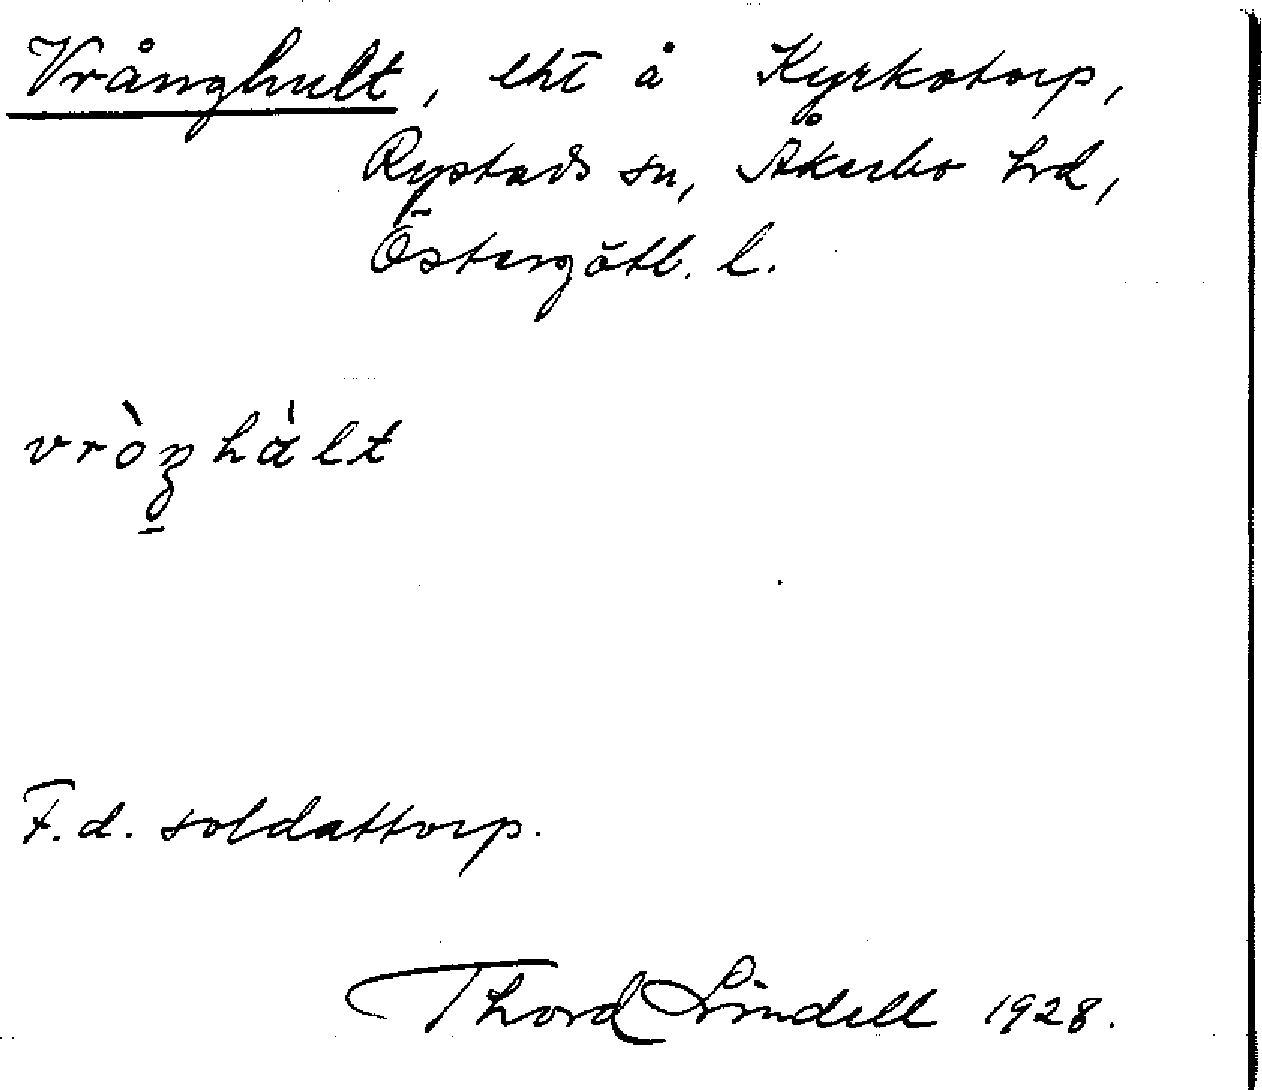 Vrånghult, lht å Kyrkotorp,
Rystads sn, Åkerbo hrd,
Östergötl. l.
vròŋhàlt
F.d. soldattorp.
Thord Lindell 1928.